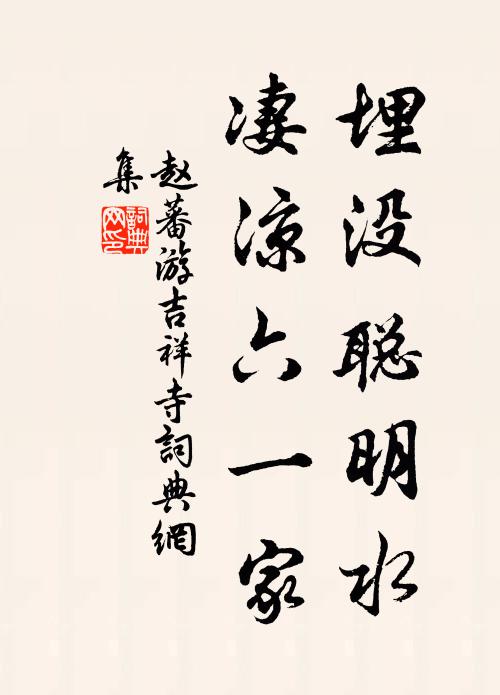 埋没聪明水
凄凉六一家
赵蕃游吉祥寺詞典網
集
詞典网印